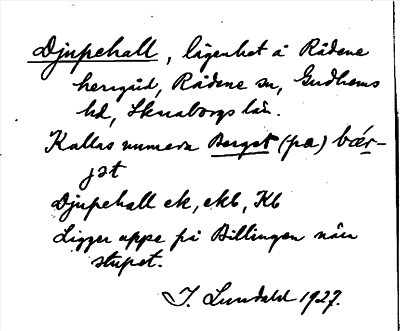 Djupehall, lägenhet å Rådene
herrgård, Rådene sn, Gudhems
hd, Skaraborgs län.
Kallas numera Berget (på) bǽr-
jət
Djupehall ek, ekb, Kb
Ligger uppe på Billingen nära
stupet.
I. Lundahl 1927.